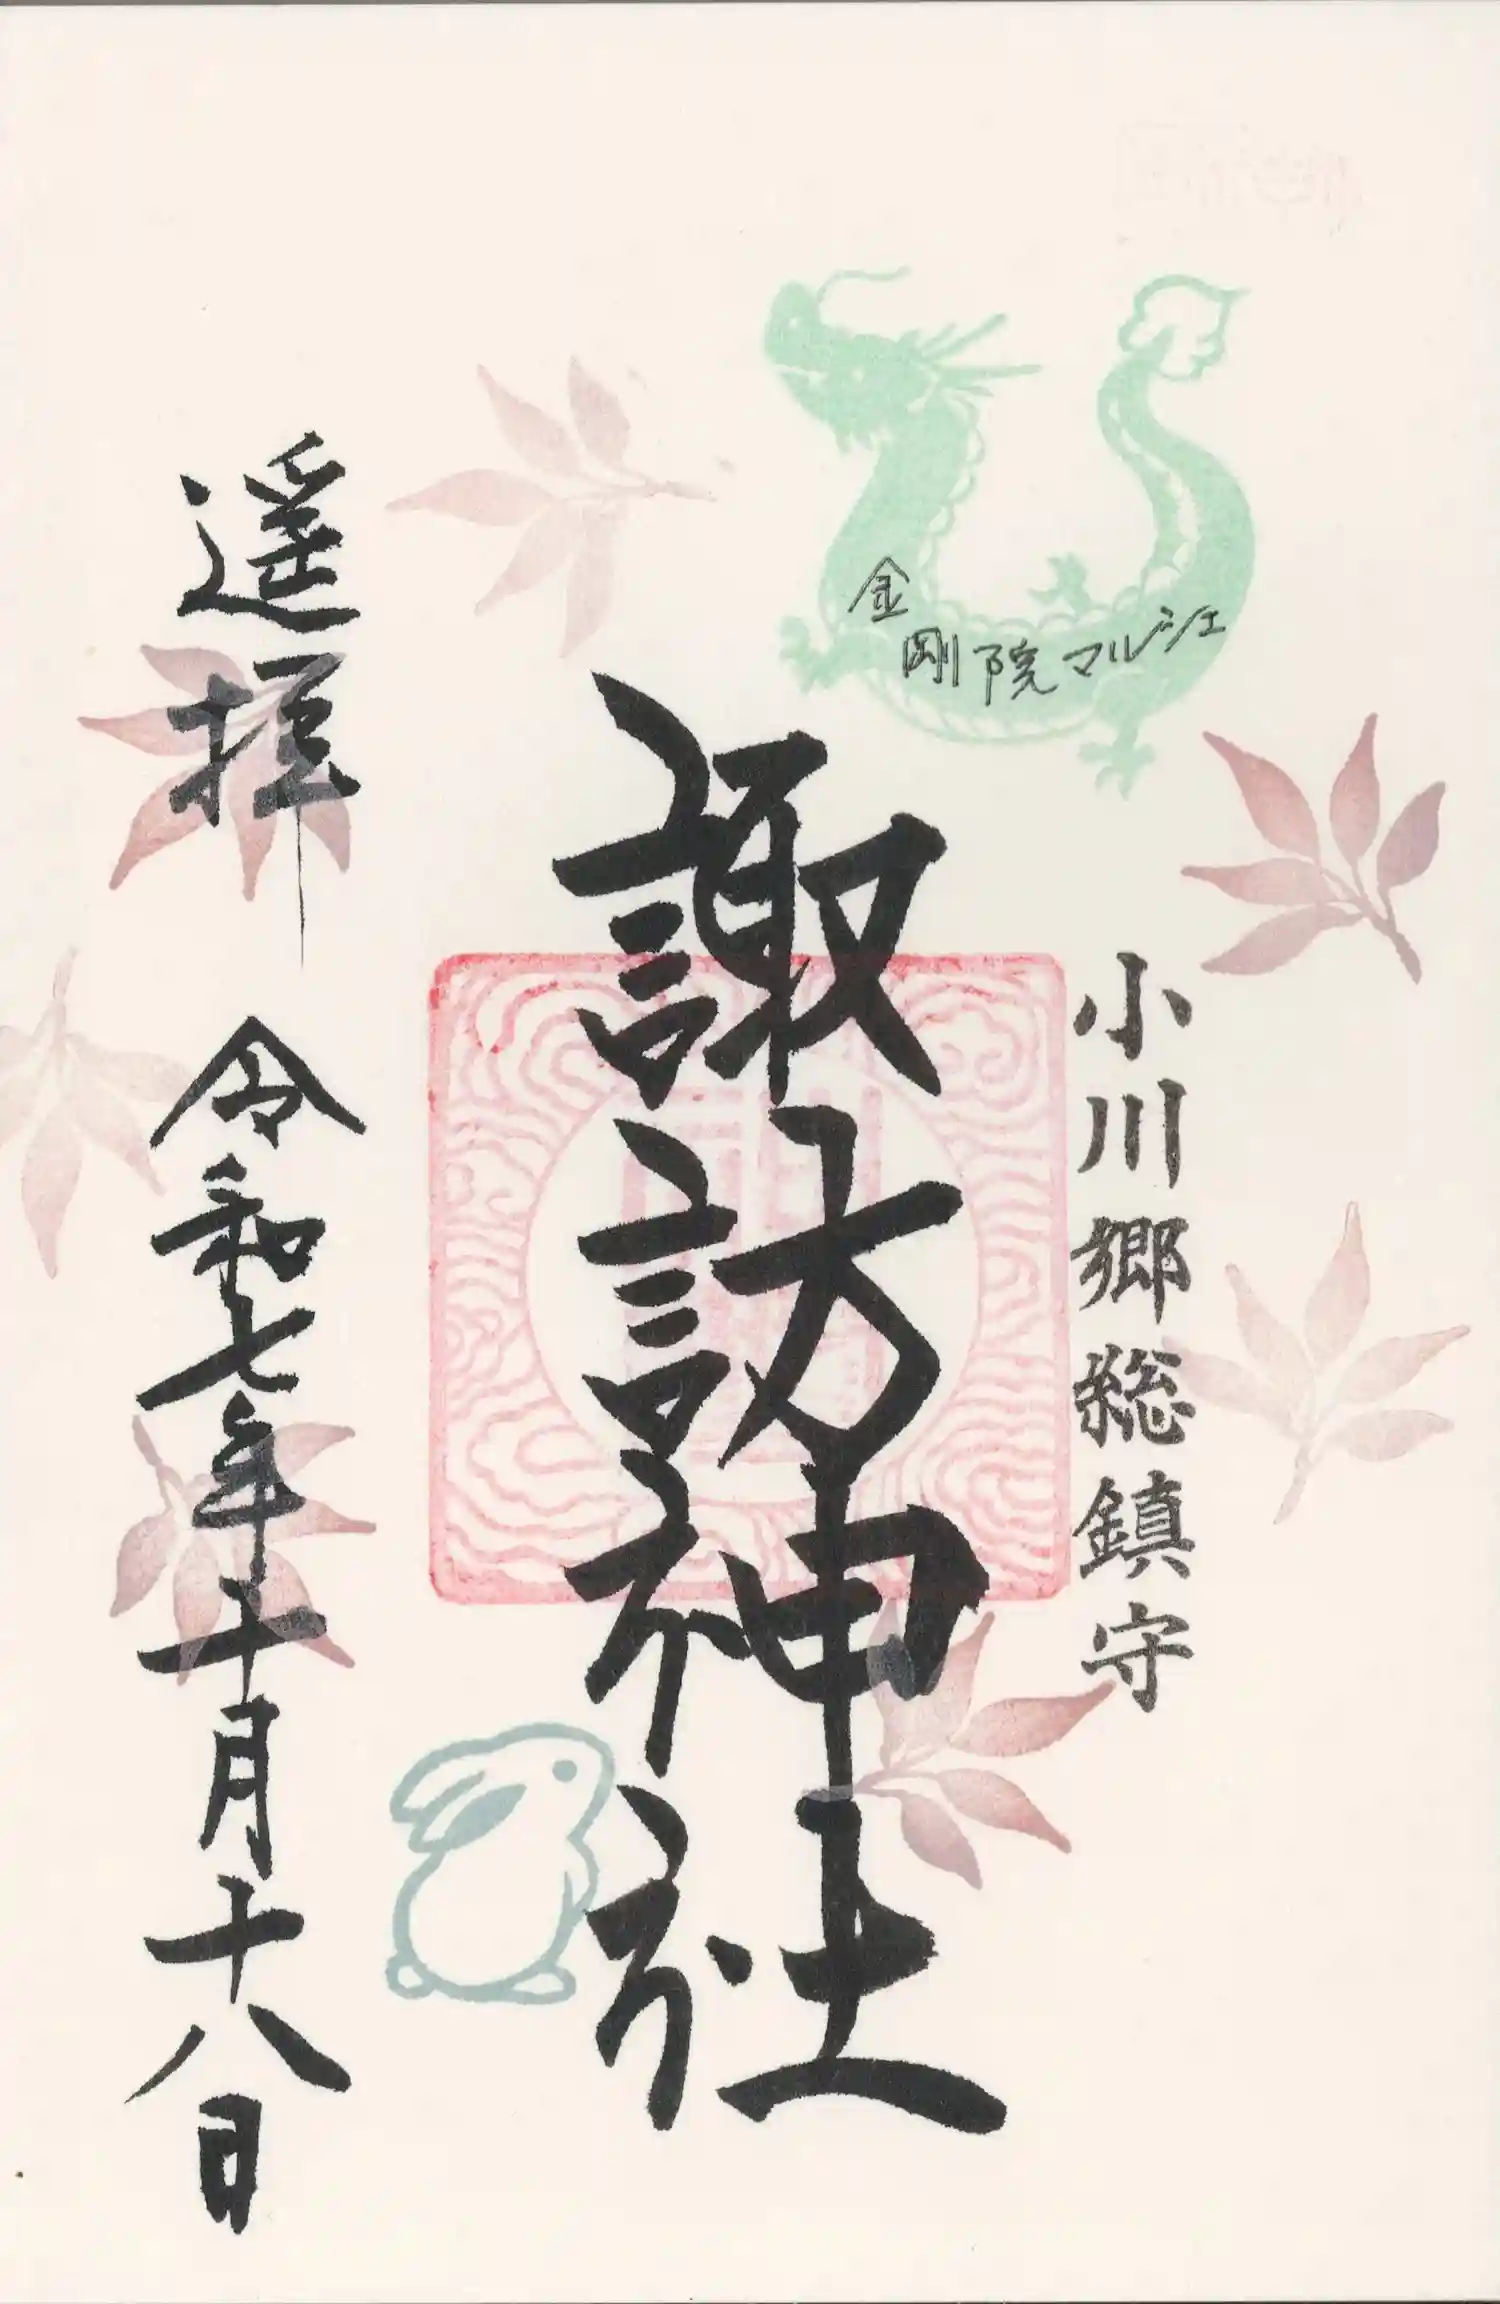 金剛院マルシェ
小川郷総鎮守
諏訪神社
遥拝
令和七年十月十八日